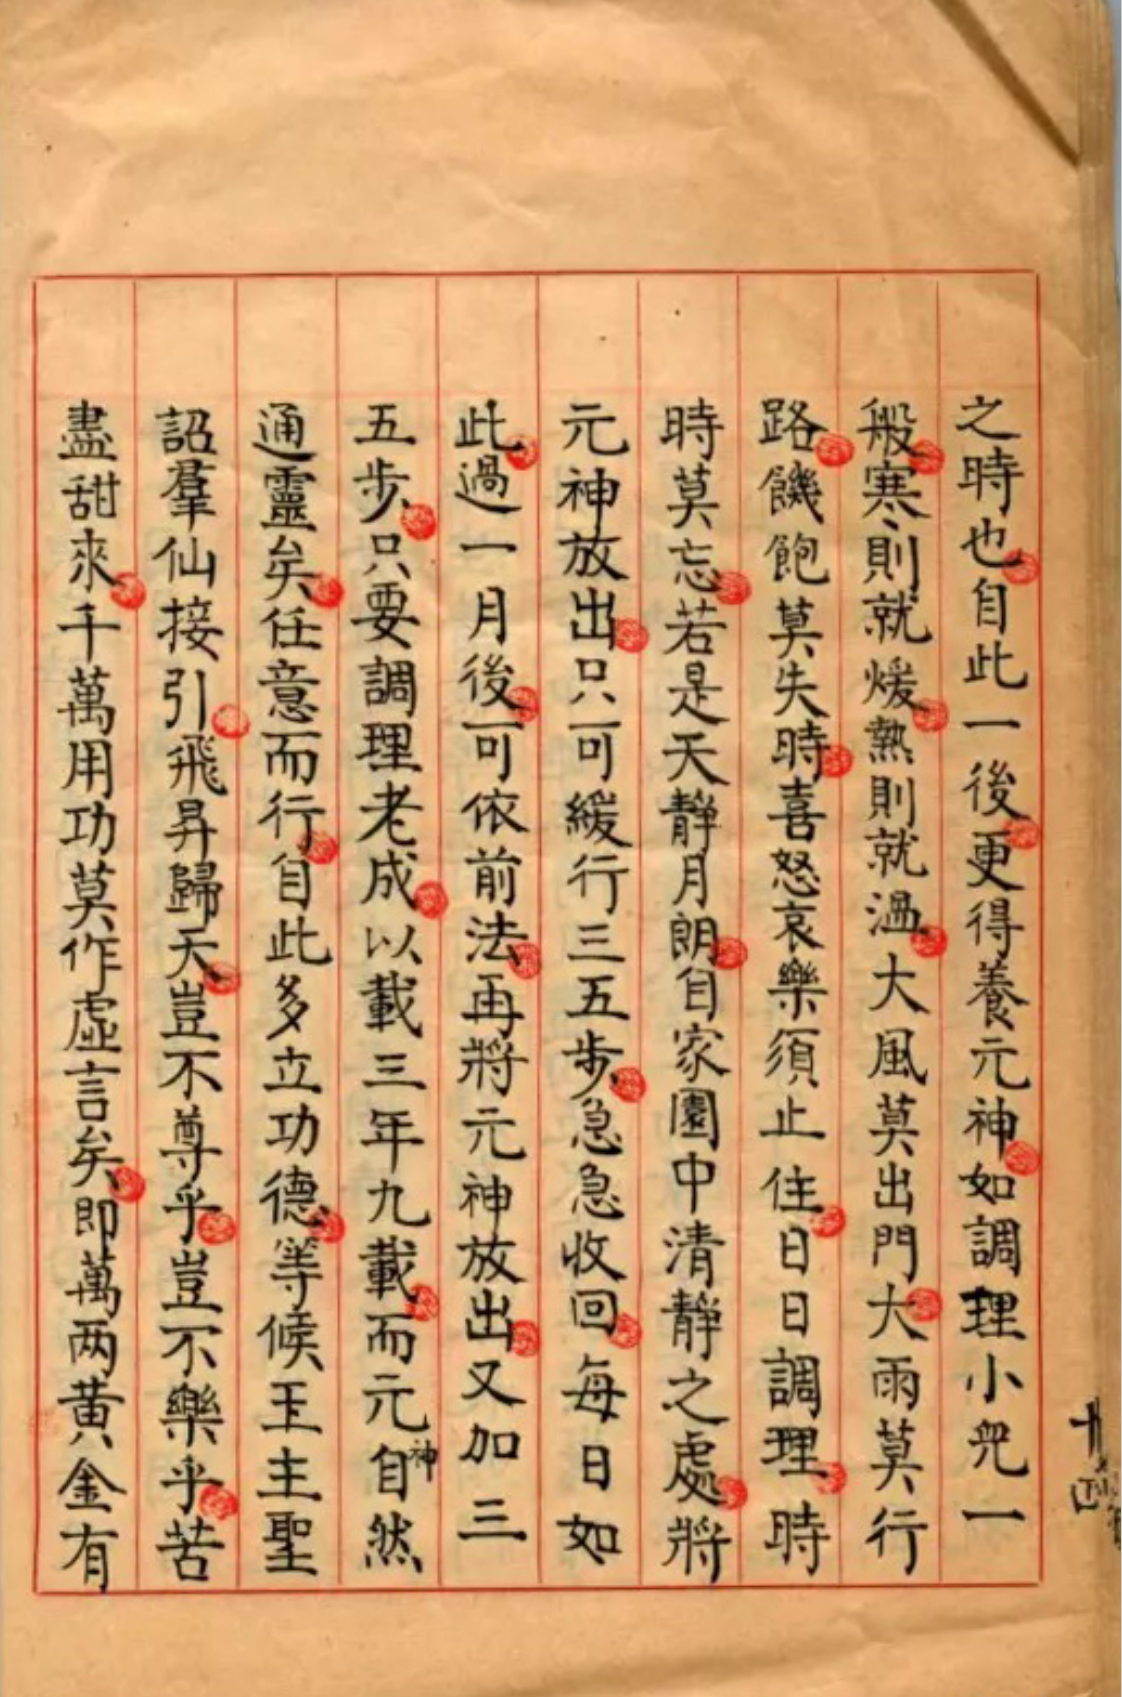 之時也自此一後更得養元神如調理小兒一
般寒則就煖熱則就溫大風莫出門大雨莫行
路饑飽莫失時喜怒哀樂須止住日日調理時
時莫忘若是天靜月朗自家園中清靜之處將
元神放出只可緩行三五步急急收回每日如
此過一月後可依前法再將元神放出又加三
五步只要調理老成以載三年九載而元神自然
通靈矣任意而行自此多立功德等候玉主聖
詔羣仙接引飛昇歸天豈不尊乎豈不樂乎苦
盡甜來千萬用功莫作虛言矣即萬两黃金有